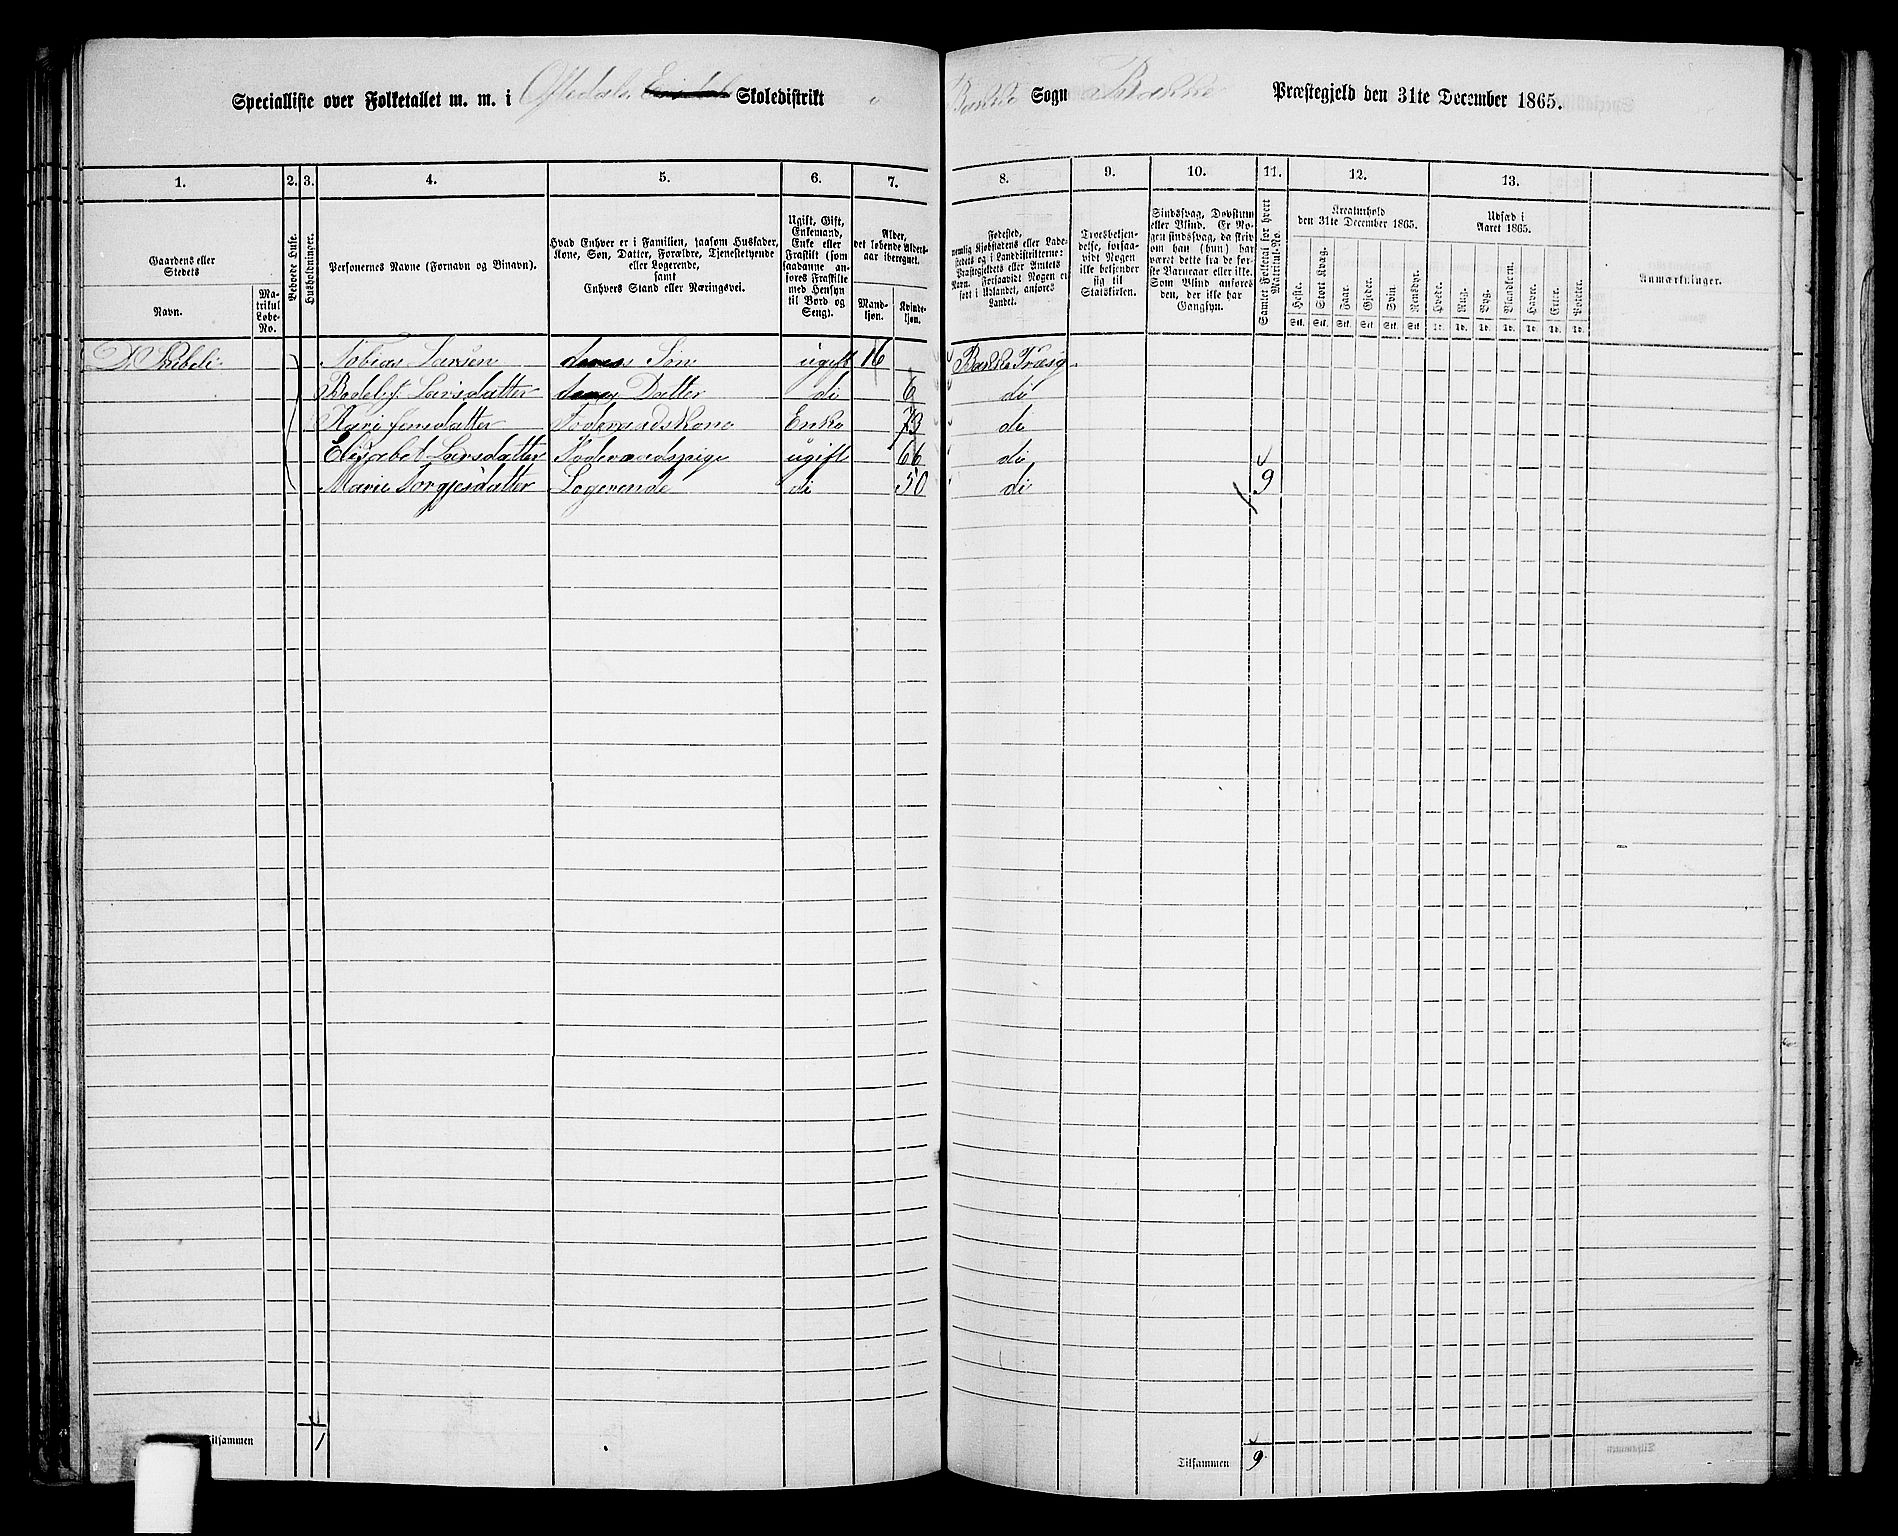 Specialliste over Folketallet m. m. i Oftedals Skoledistrikt i Bakke Sogn Bakke Præstegjeld den 31te December 1865.
1. 2. 3. 4. 5. 6. 7. 8. 9. 10. 11. 12. 13.
Gaardens eller Stedets
Navn.
Matrikul Løbe-No.
Beboede Huse.
Husholdninger.
Personernes Navne (Fornavn og Binavn).
Hvad Enhver er i Familien, saasom Husfader, Kone, Søn, Datter, Forældre, Tjenestetyende eller Logerende, samt Enhvers Stand eller Næringsvei.
Ugift, Gift, Enkemand, Enke eller Fraskilt (som saadanne anføres Fraskilte med Hensyn til Bord og Seng).
Alder, det løbende Aldersaar iberegnet.
Mandkjøn.
Kvindekjøn.
Fødested, nemlig Kjøbstadens eller Ladestedets og i Landdistrikterne Præstegjeldets eller Amtets Navn. Forsaavidt Nogen er født i Udlandet, anføres Landet.
Troesbekjendelse, forsaavidt Nogen ikke bekjender sig til Statskirken.
Sindssvag, Døvstum eller Blind. Er Nogen sindssvag, da skriv om han (hun) har været dette fra de første Barneaar eller ikke. Som Blind anføres den, der ikke har Gangsyn.
Samlet Folketal for hvert Matrikul-No.
Kreaturhold den 31te December 1865.
Heste. Stort Kvæg. Faar. Gjeder. Svin. Rensdyr.
Stk. Stk. Stk. Stk. Stk. Stk.
Udsæd i Aaret 1865.
Hvede. Rug. Byg. Blandkorn. Havre. Erter. Poteter.
Td. Td. Td. Td. Td. Td. Td.
Anmærkninger.
Tobias Larsen deres Søn ugift 16 Bakke Præsg.
Larsdatter Datter di 6 di
Enke 73 do
Elisabet Larsdatter ugift 66 di
Marie Torgjesdatter Logerende di 50 di 9
Tilsammen 1 Tilsammen 9